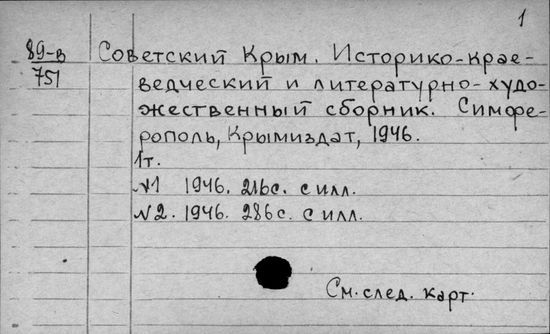 1
89-в Советский Крым. Историко-крае-
751 ведческий и литературно-худо-
жественный сборник. Симфе-
рополь, Крымиздат, 1946.
1т.
№1 1946. 216с. с илл.
№2. 1946. 286с. с илл.
См. след. карт.